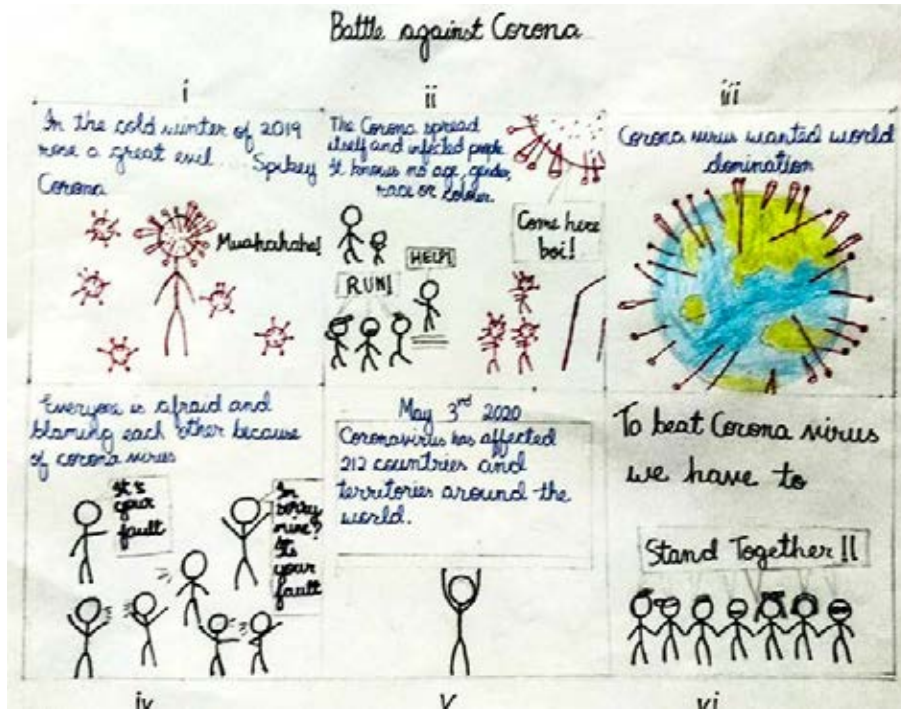 Battle against Corona
i
In the cold winter of 2019
rose a great evil... Spikey
Corona
Muahahaha!
ii
The Corona spread
itself and infected people
It knows no age, gender,
race or colour.
Come here
boi!
HELP!
RUN!
iii
Corona virus wanted world
domination
Everyone is afraid and
blaming each other because
of corona virus
It's
your
fault
mine?
Its
your
fault
iv
May 3rd 2020
Coronavirus has affected
212 countries and
territories around the
world.
v
To beat Corona virus
we have to
Stand Together!!
vi